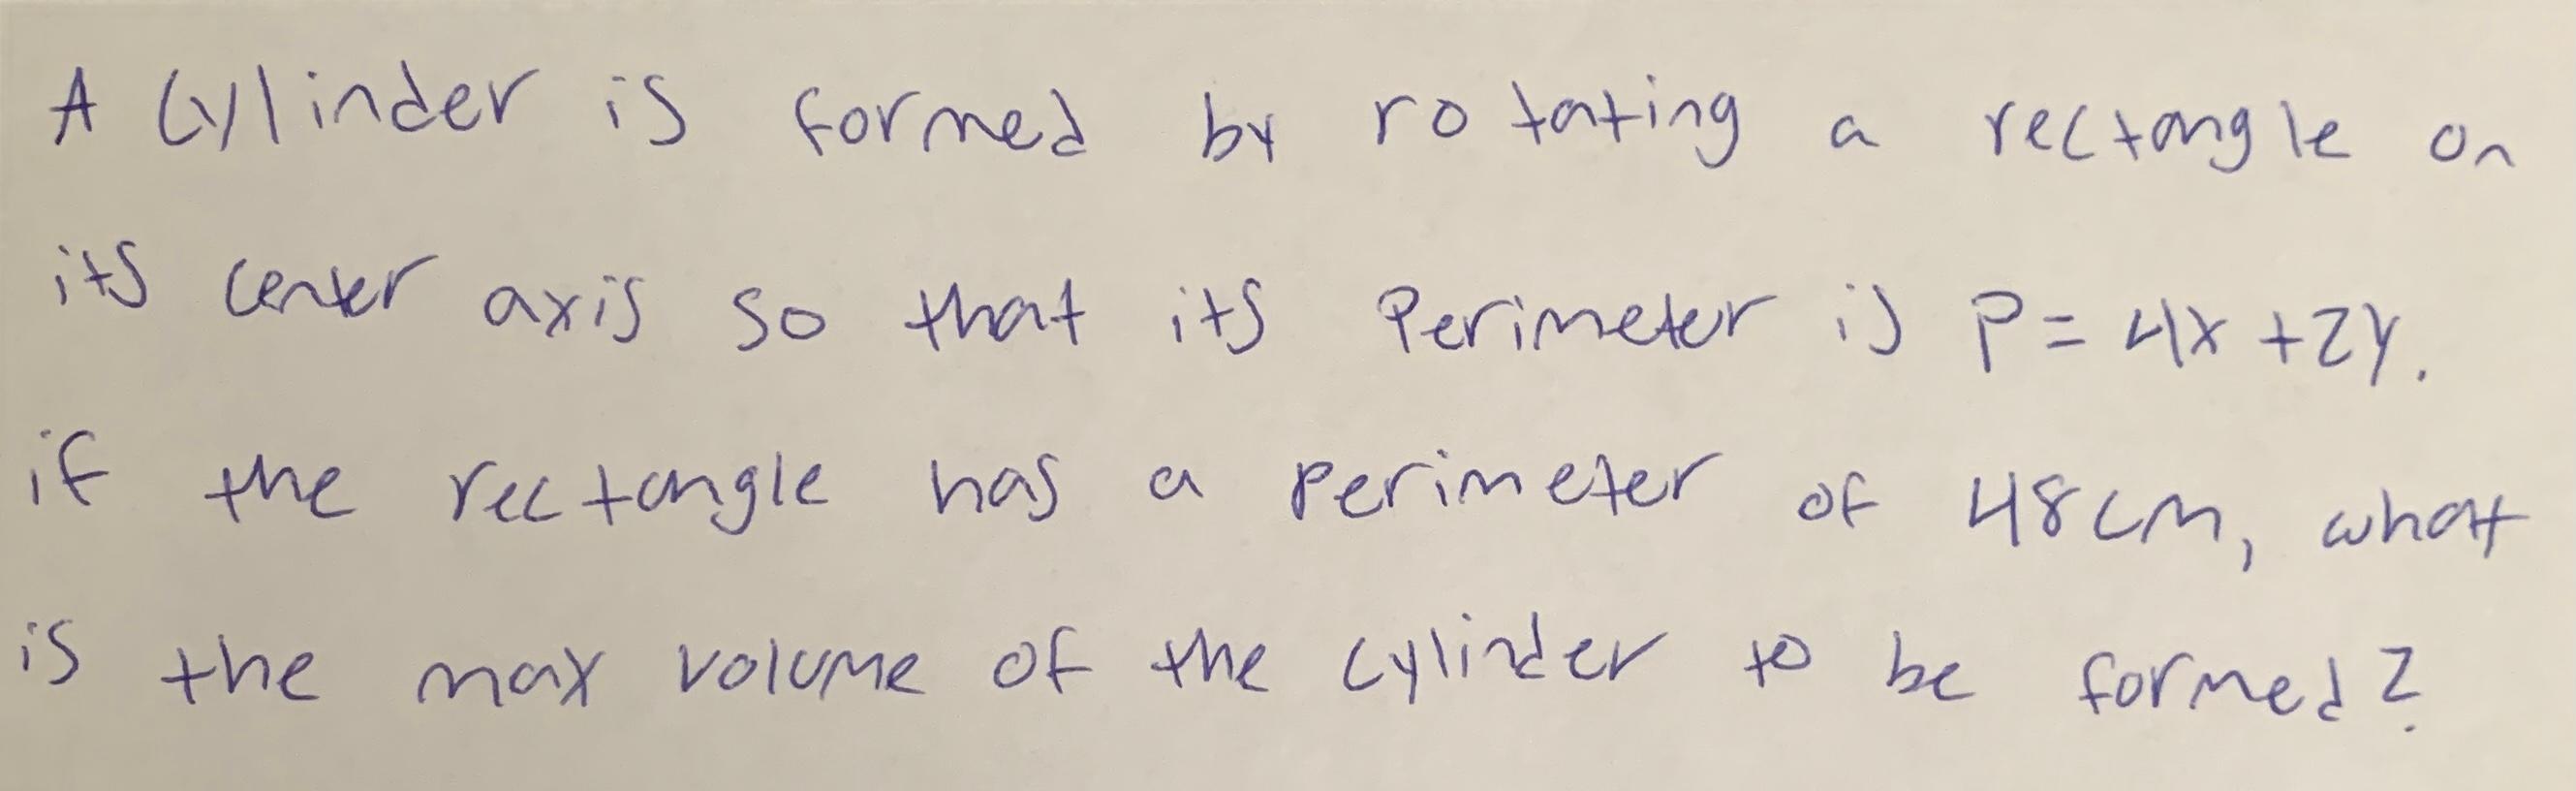 A cylinder is formed by rotating a rectangle on
its center axis so that its perimeter is P = 4x + 2y.
if the rectangle has a perimeter of 48cm, what
is the max volume of the cylinder to be formed?